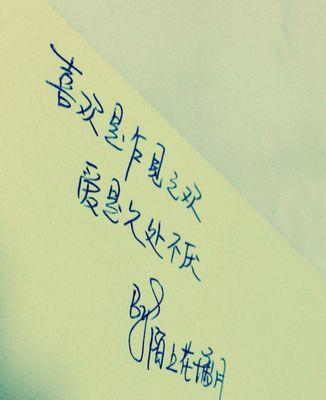 喜欢是乍见之欢
爱是久处不厌
By 陌上花开